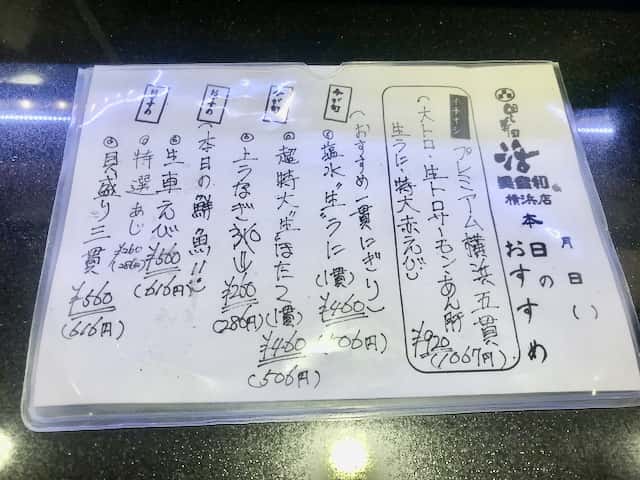 活
美登利
横浜店
月 日( )
本日のおすすめ
イチオシ
プレミアム横浜五貫
(大トロ・生トロサーモン・あん肝
生うに・特大赤えび)
¥920
(1067円)
今が旬
(おすすめ一貫にぎり)
塩水"生"うに(1貫)
¥460
(506円)
今が旬
超特大"生"ほたて(1貫)
¥460
(506円)
上うなぎ
¥260
(286円)
おすすめ
(本日の鮮魚!!)
生車えび
¥560
(616円)
おすすめ
特選あじ
¥260
(286円)
貝盛り三貫
¥560
(616円)